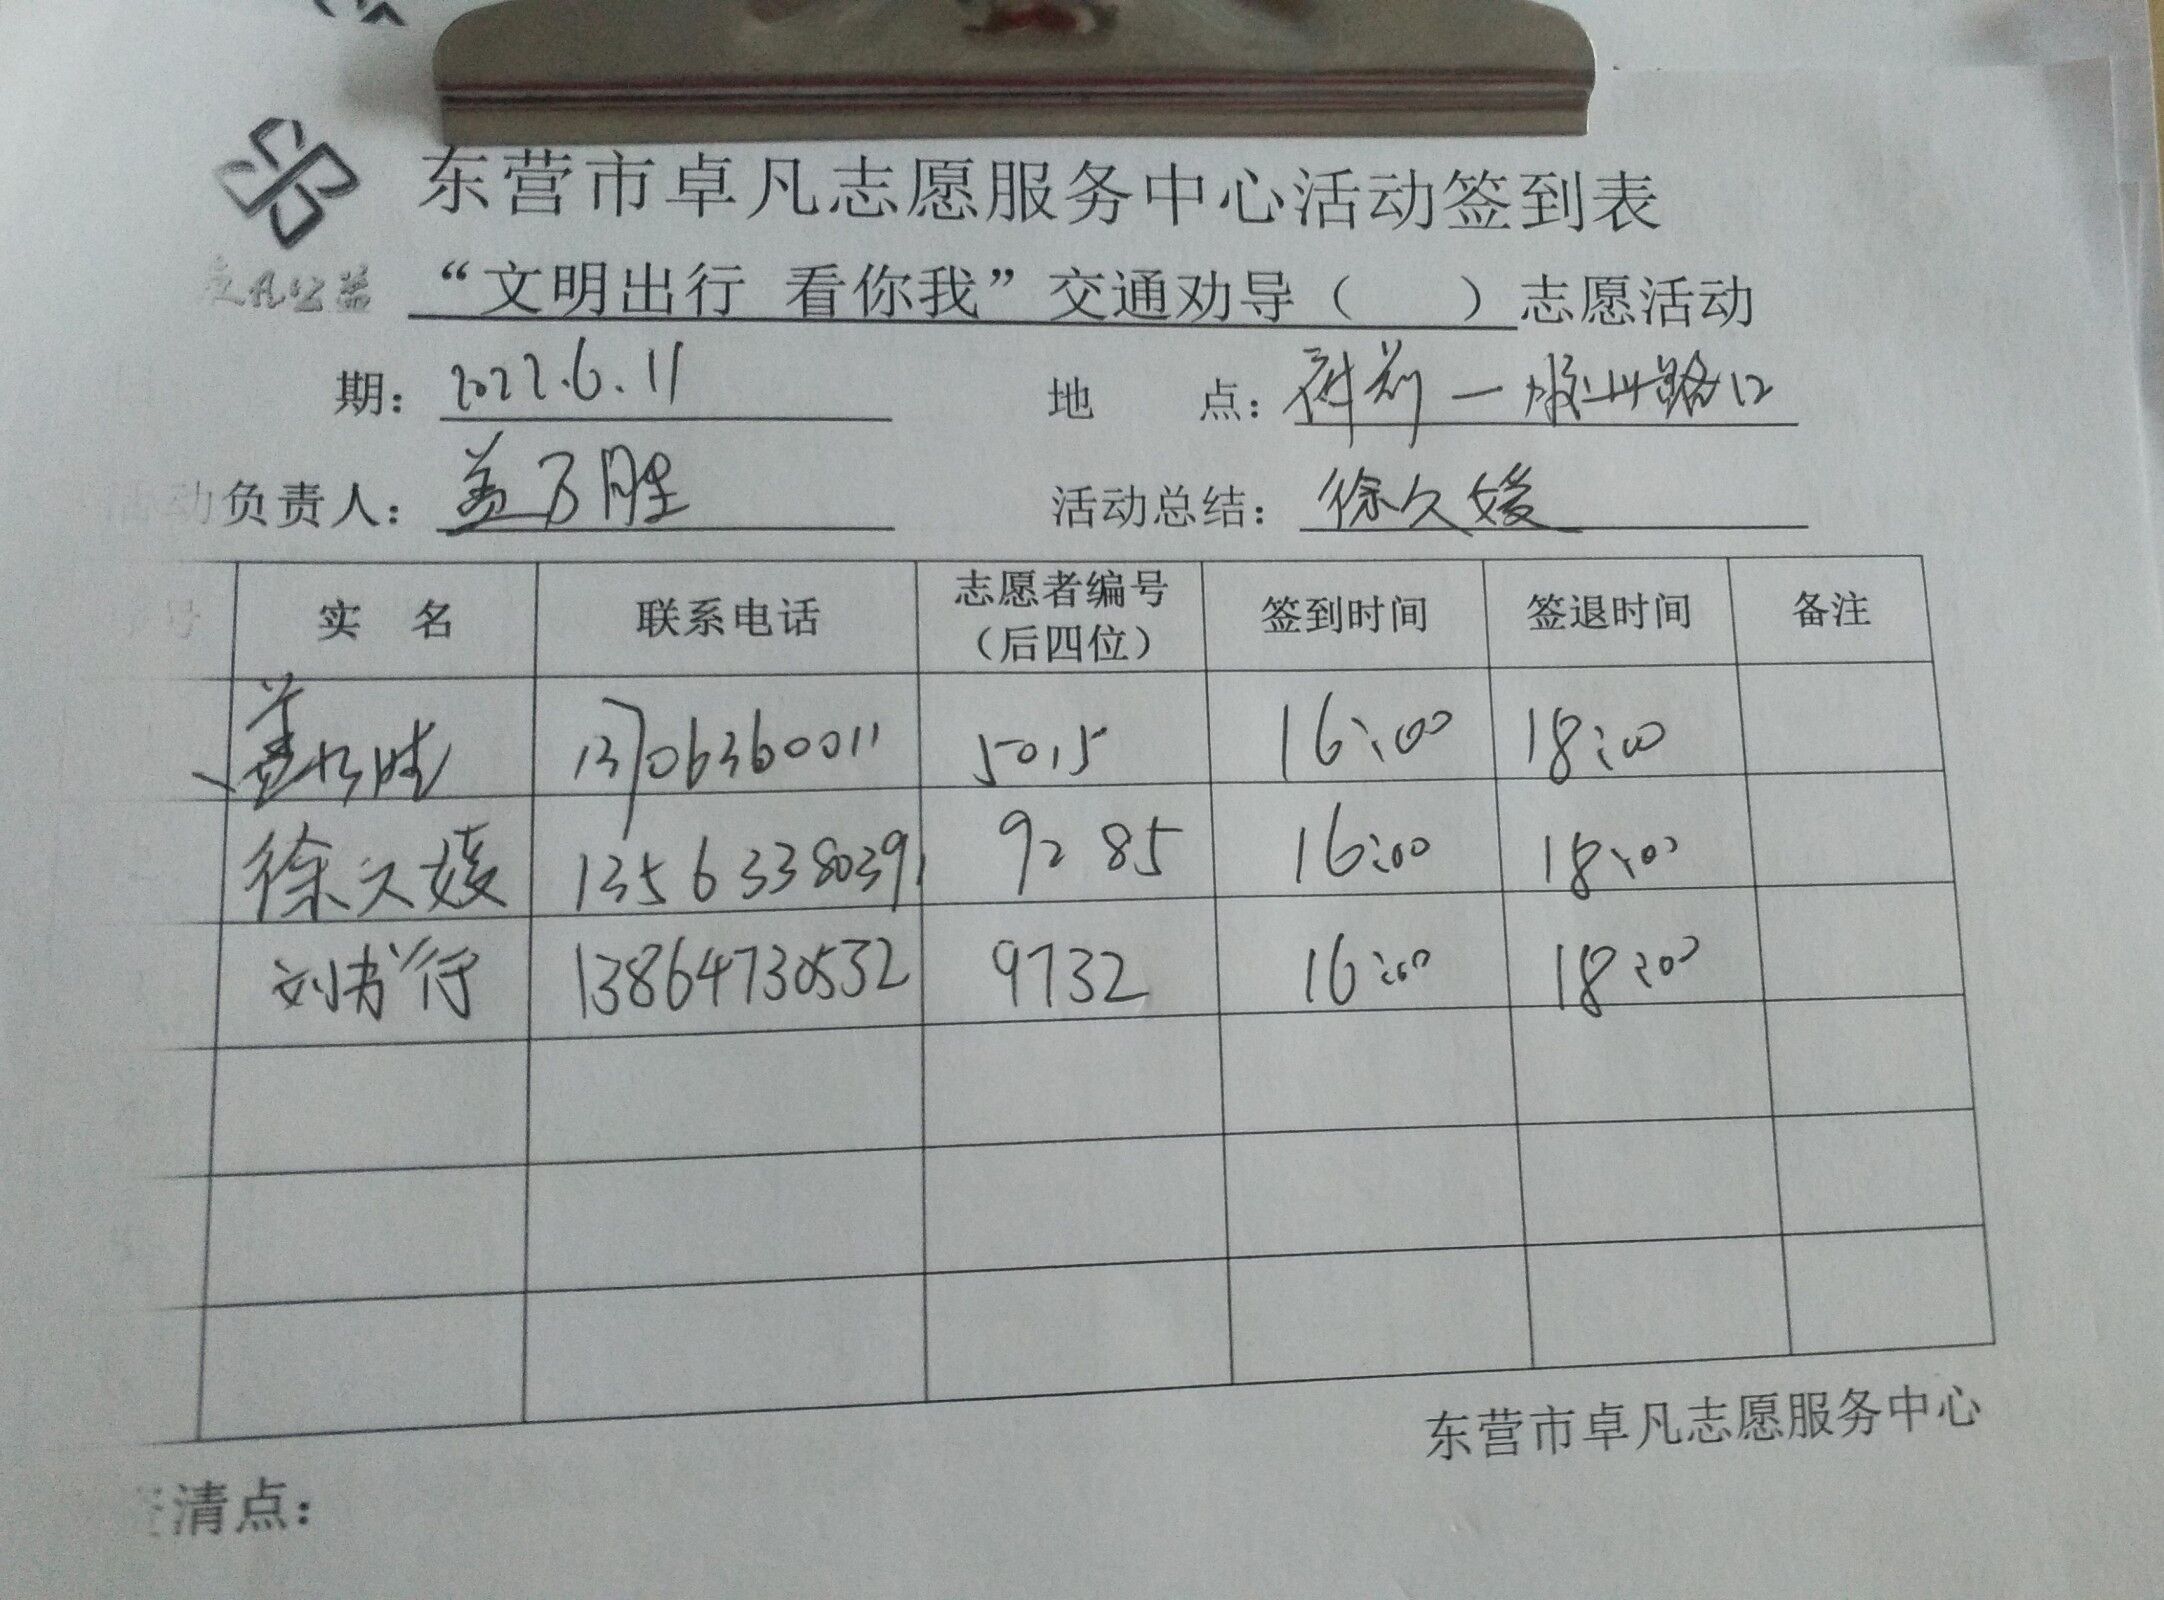 东营市卓凡志愿服务中心活动签到表
“文明出行 看你我”交通劝导（ ）志愿活动
期： 2022.6.11 地 点： 府前一胶州路口
活动负责人： 盖万胜 活动总结： 徐久媛
号 实 名 联系电话 志愿者编号（后四位） 签到时间 签退时间 备注
盖万胜 13706360011 5015 16:00 18:00
徐久媛 13563380391 9285 16:00 18:00
刘书行 13864730532 9732 16:00 18:00
东营市卓凡志愿服务中心
清点：